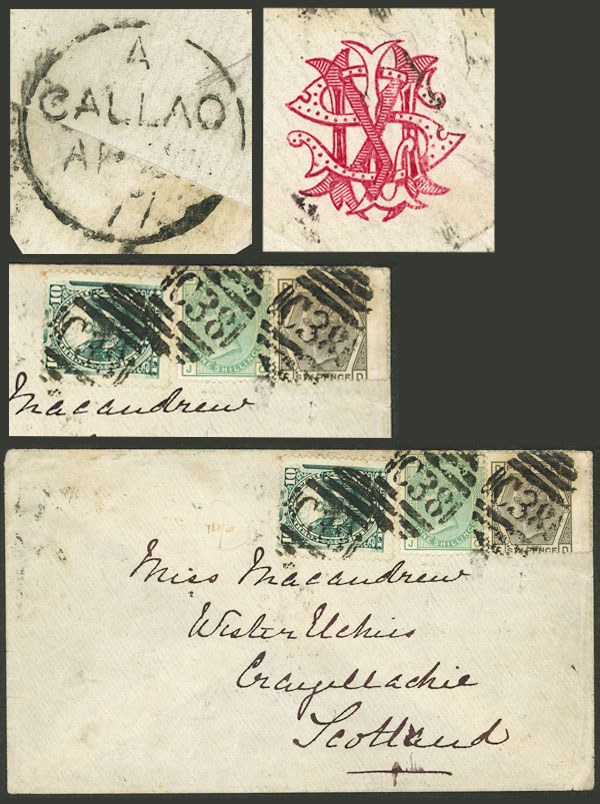 A
CALLAO
AP
77
10
C38
C38
C38
J
ONE SHILLING
SIX PENCE
D
Macandrew
10
C38
C38
J
ONE SHILLING
SIX PENCE
D
Miss Macandrew
Wester Elchies
Craigellachie
Scotland